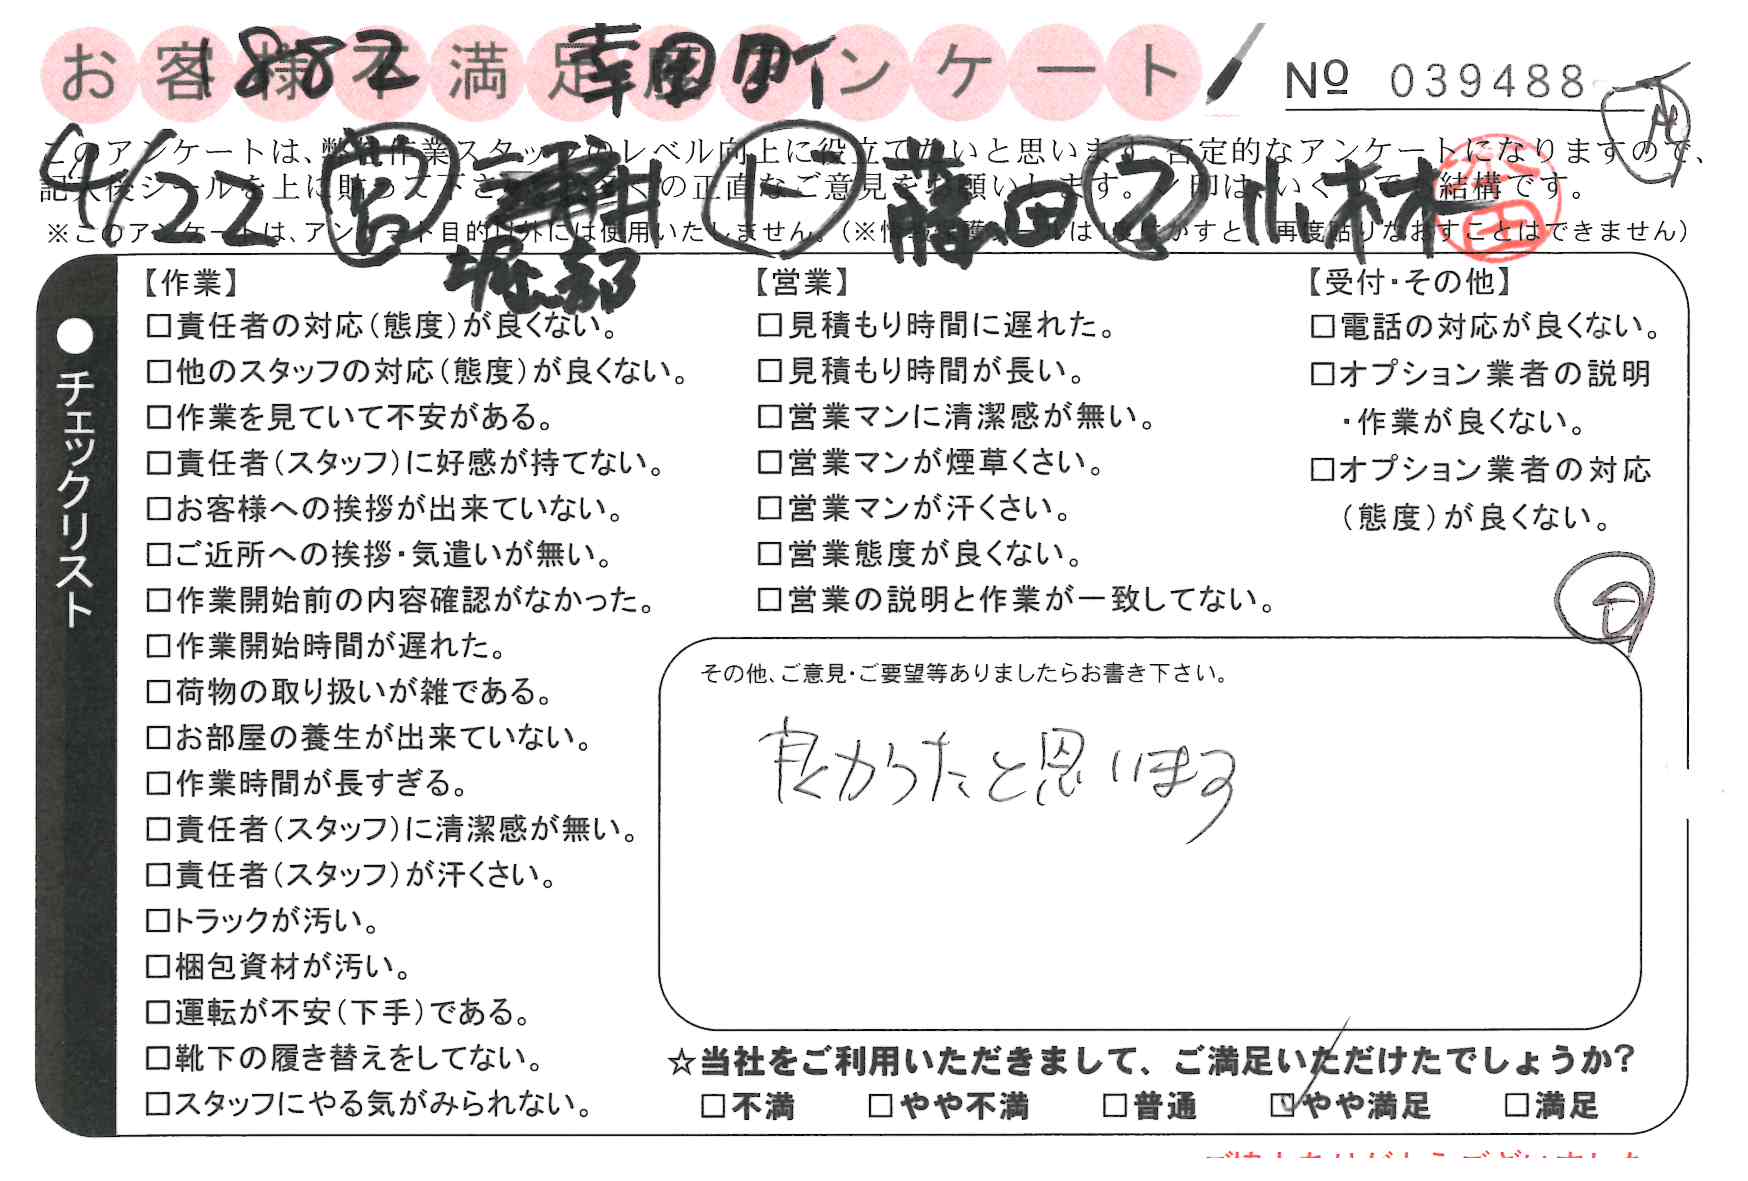 お客様不満足度アンケート
1882 幸田町
No 039488
このアンケートは、弊社作業スタッフのレベル向上に役立てたいと思います。否定的なアンケートになりますので、
4/22 堀部 ト 藤田 2 小林
※このアンケートは、アンケート目的以外には使用いたしません。
再度貼りなおすことはできません)
●チェックリスト
【作業】
□責任者の対応(態度)が良くない。
□他のスタッフの対応(態度)が良くない。
□作業を見ていて不安がある。
□責任者(スタッフ)に好感が持てない。
□お客様への挨拶が出来ていない。
□ご近所への挨拶・気遣いが無い。
□作業開始前の内容確認がなかった。
□作業開始時間が遅れた。
□荷物の取り扱いが雑である。
□お部屋の養生が出来ていない。
□作業時間が長すぎる。
□責任者(スタッフ)に清潔感が無い。
□責任者(スタッフ)が汗くさい。
□トラックが汚い。
□梱包資材が汚い。
□運転が不安(下手)である。
□靴下の履き替えをしてない。
□スタッフにやる気がみられない。
【営業】
□見積もり時間に遅れた。
□見積もり時間が長い。
□営業マンに清潔感が無い。
□営業マンが煙草くさい。
□営業マンが汗くさい。
□営業態度が良くない。
□営業の説明と作業が一致してない。
【受付・その他】
□電話の対応が良くない。
□オプション業者の説明
・作業が良くない。
□オプション業者の対応
(態度)が良くない。
その他、ご意見・ご要望等ありましたらお書き下さい。
良かったと思います
☆当社をご利用いただきまして、ご満足いただけたでしょうか?
□不満 □やや不満 □普通 ☑やや満足 □満足